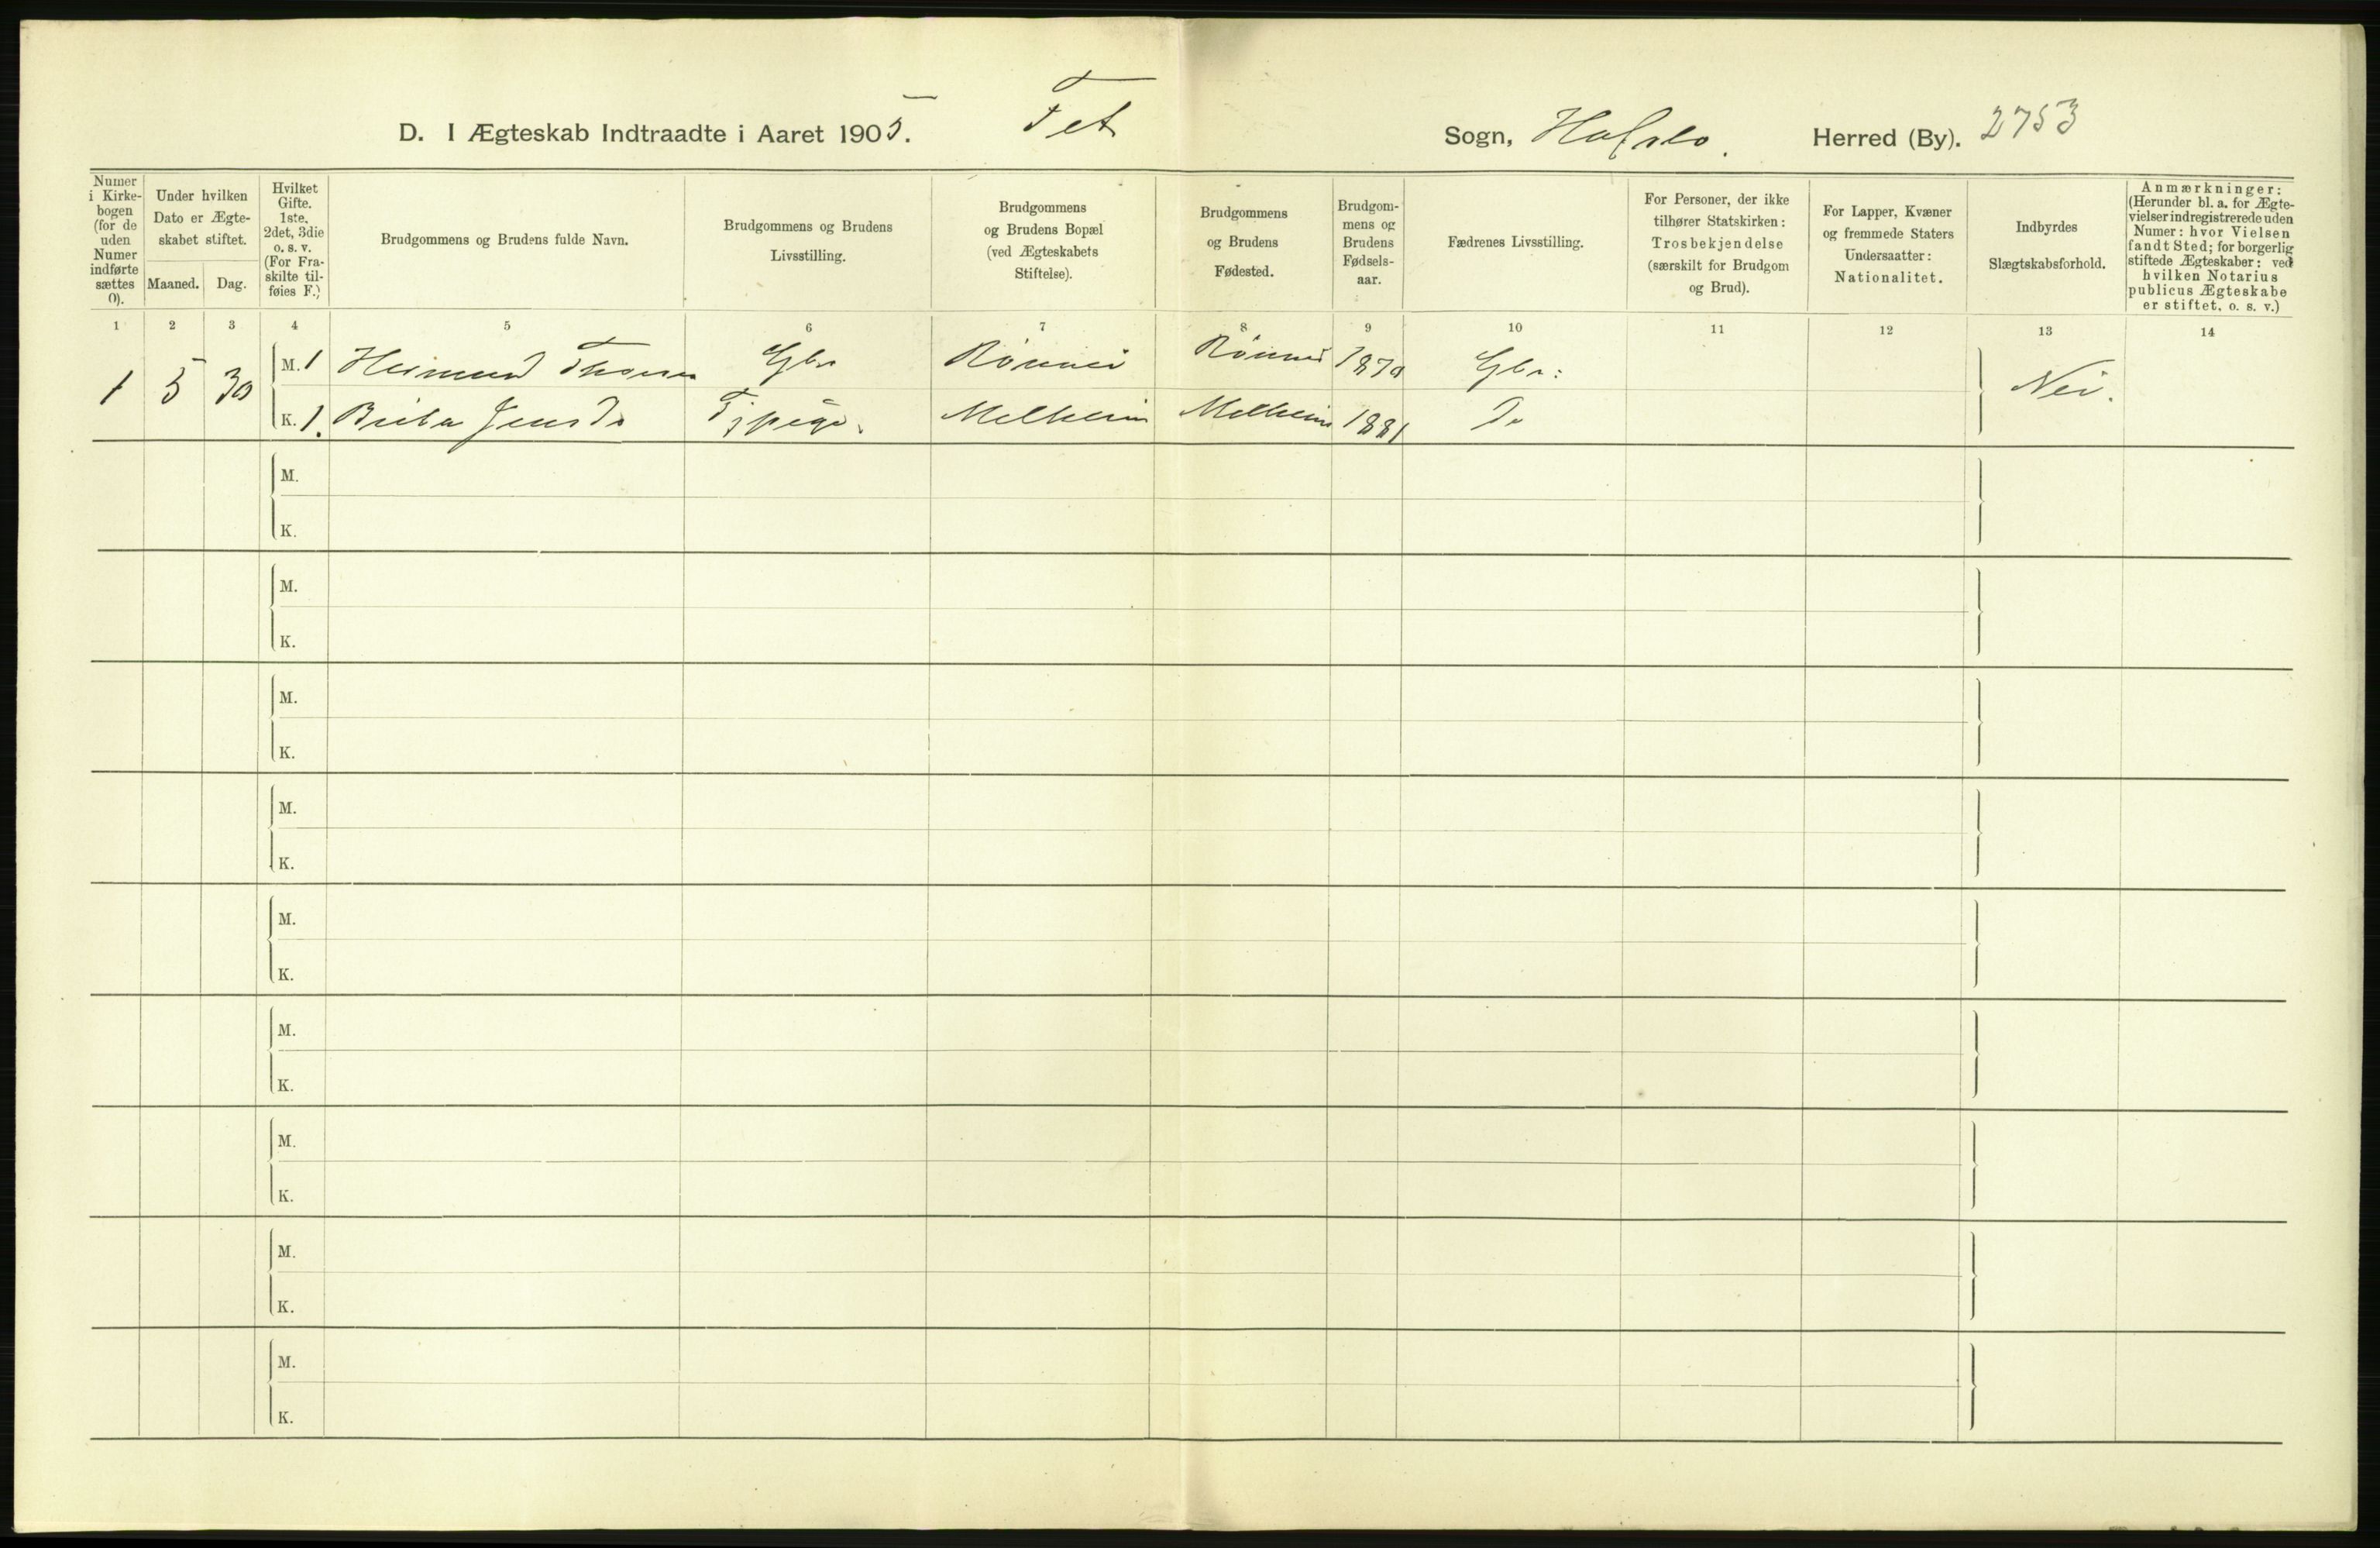 D. I Ægteskab Indtraadte i Aaret 1905. Fet Sogn, Hafslo. Herred (By). 2753
Numer i Kirke-bogen (for de uden Numer indførte sættes 0).
Under hvilken Dato er Ægte-skabet stiftet.
Maaned. Dag.
Hvilket Gifte. 1ste, 2det, 3die o. s. v. (For Fra-skilte til-føies F.)
Brudgommens og Brudens fulde Navn.
Brudgommens og Brudens Livsstilling.
Brudgommens og Brudens Bopæl (ved Ægteskabets Stiftelse).
Brudgommens og Brudens Fødested.
Brudgom-mens og Brudens Fødsels-aar.
Fædrenes Livsstilling.
For Personer, der ikke tilhører Statskirken: Trosbekjendelse (særskilt for Brudgom og Brud).
For Lapper, Kvæner og fremmede Staters Undersaatter: Nationalitet.
Indbyrdes Slægtskabsforhold.
Anmærkninger: (Herunder bl. a. for Ægte-vielser indregistrerede uden Numer: hvor Vielsen fandt Sted; for borgerlig stiftede Ægteskaber: ved hvilken Notarius publicus Ægteskabe er stiftet. o. s. v.)
1 2 3 4 5 6 7 8 9 10 11 12 13 14
1 5 30 M. 1 Heimund Gbr Rönnei Rönnei 1870 Gbr: Nei.
K. 1. Jensdr Tjpige. Melheim Melheim 1881 Do
M.
K.
M.
K.
M.
K.
M.
K.
M.
K.
M.
K.
M.
K.
M.
K.
M.
K.